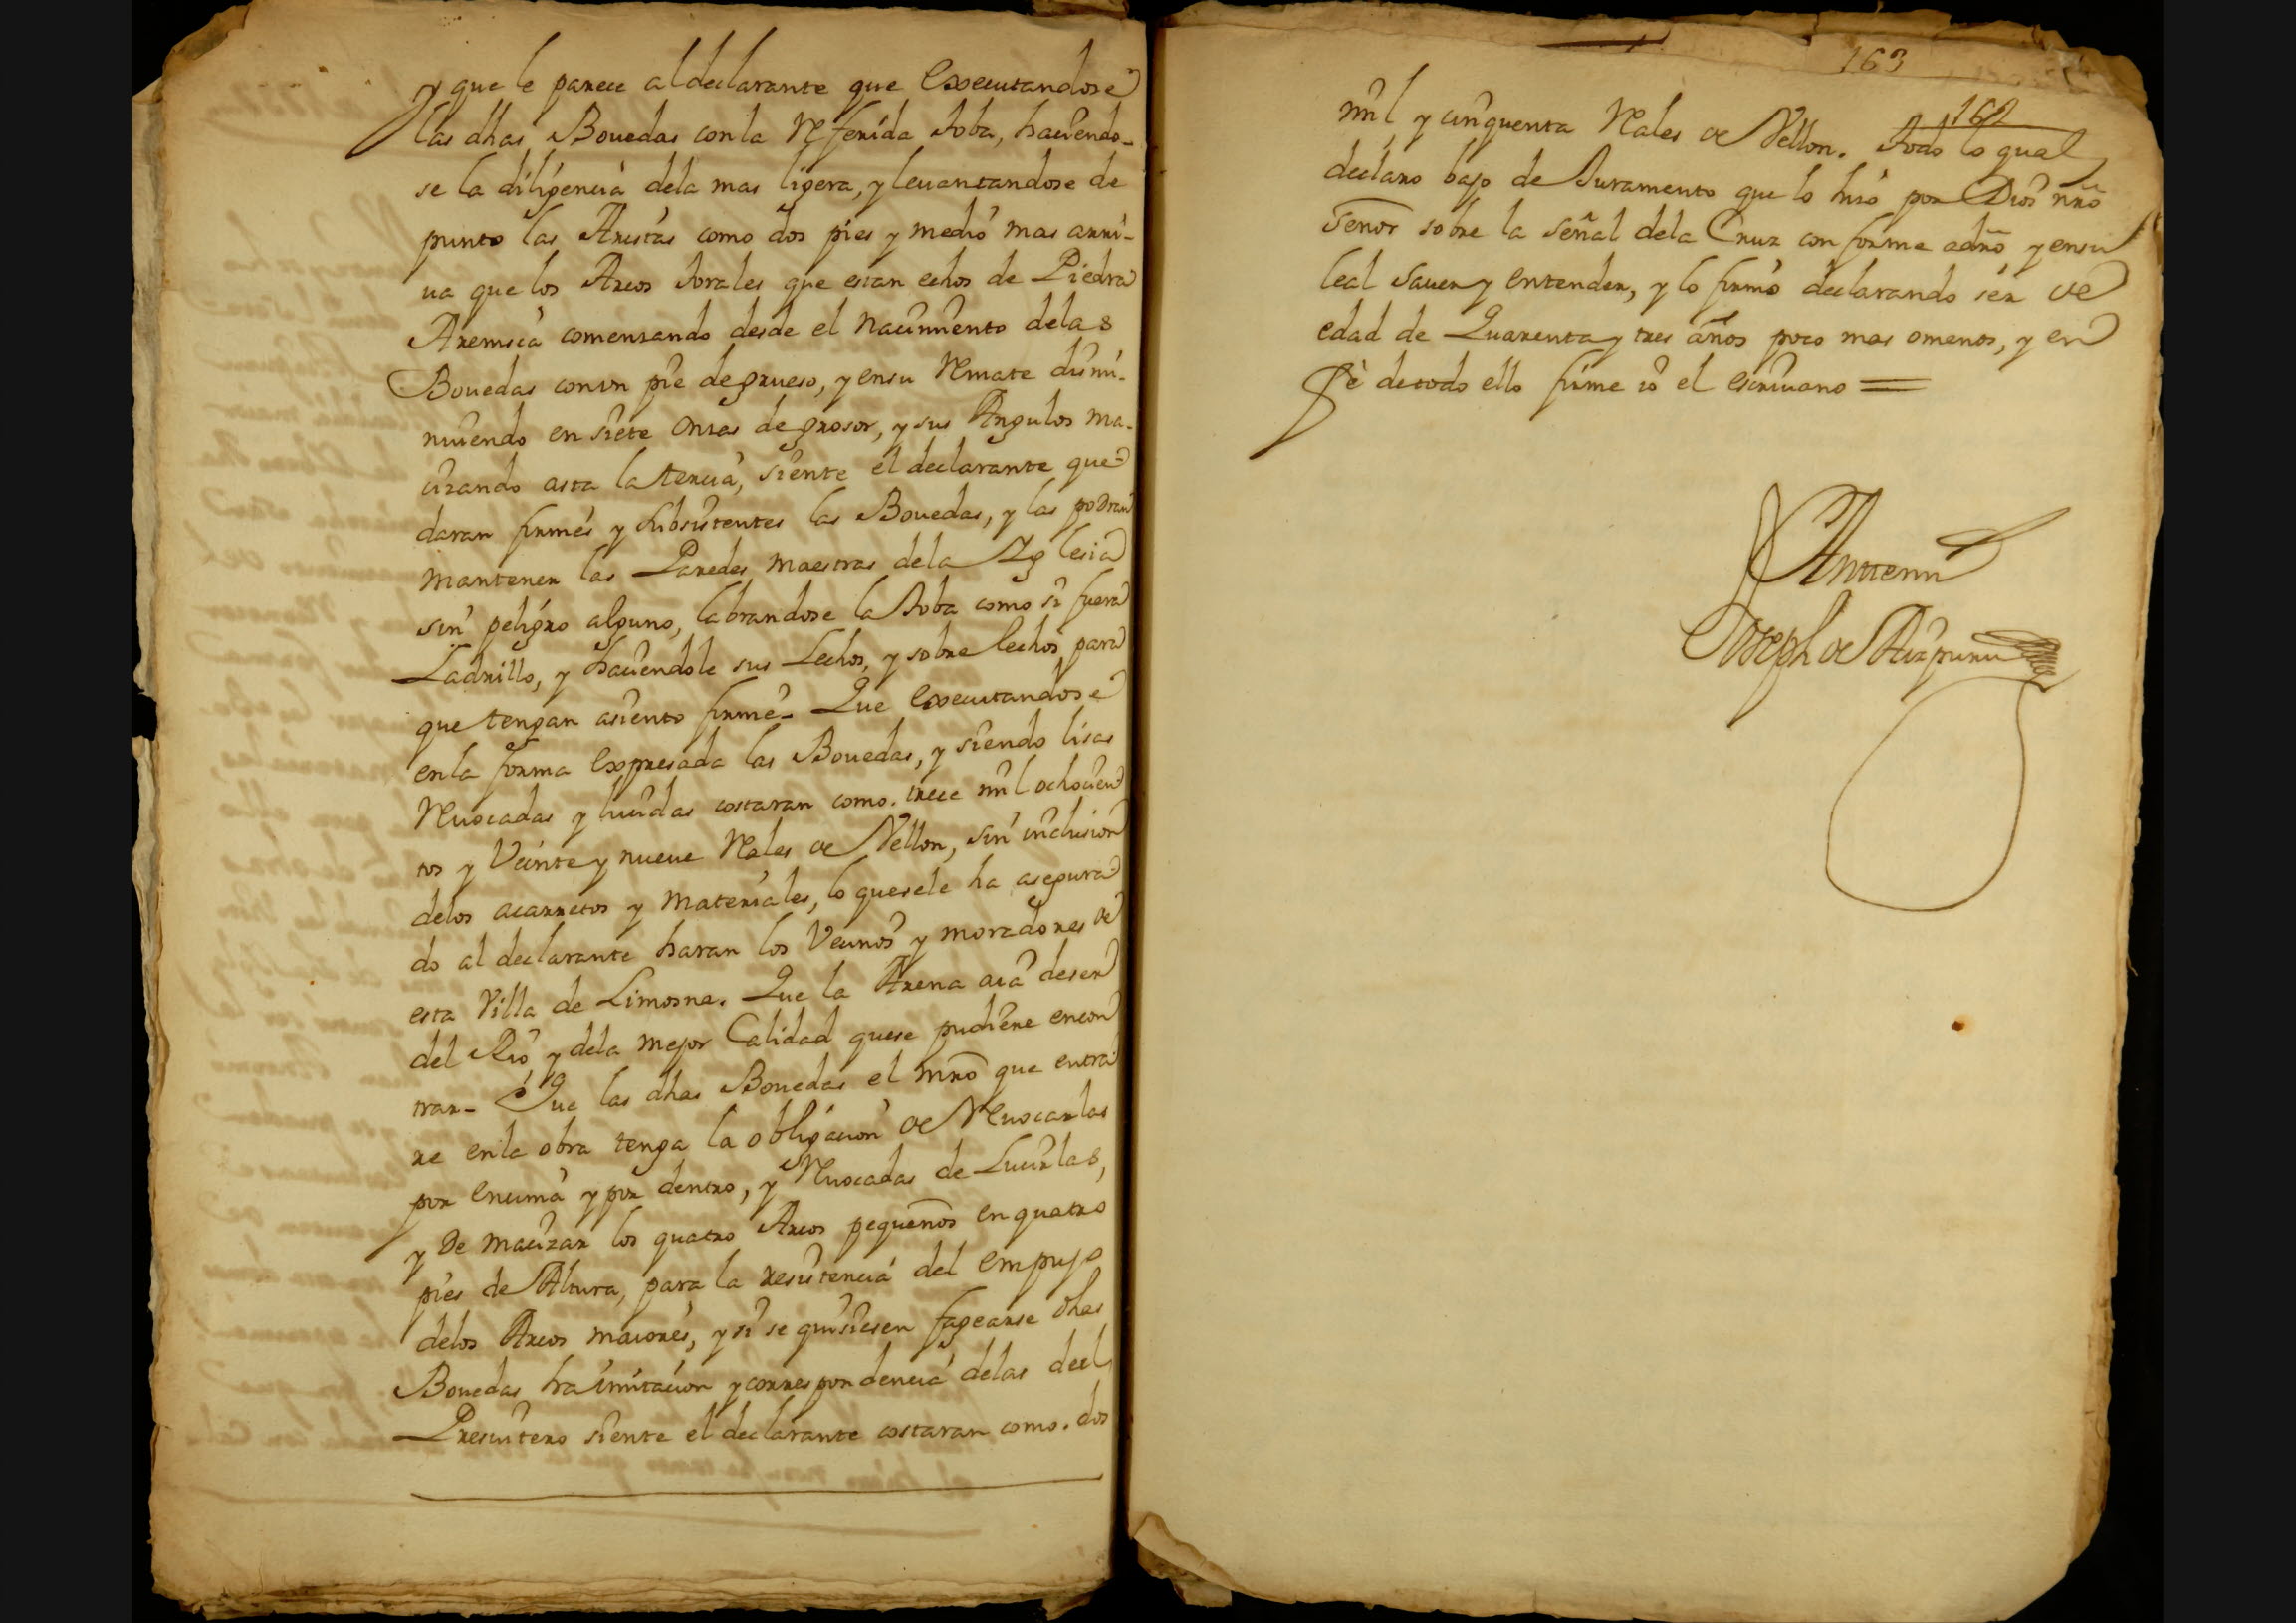 y que le parece al declarante que Executandose
las dhas Bouedas con la Referida toba, haciendo-
se la diligencia dela mas ligera, y leuantandose de
punto las Aristas como dos pies y medio mas arri-
ua que los Arcos torales que estan echos de Piedra
Arenisca comenzando desde el nacimiento delas
Bouedas con vn pie de grueso, y en su Remate dismi-
nuiendo en siete onzas de grosor, y sus Angulos ma-
cizando asta la tercia, siente el declarante que
daran firmes y subsistentes las Bouedas, y las podran
mantener las Paredes maestras dela Yglesia
sin peligro alguno, labrandose la toba como si fuera
Ladrillo, y haciendole sus Lechos, y sobre lechos para
que tengan asiento firme- Que Executandose
enla forma Expresada las Bouedas, y siendo lisas
Reuocadas y lucidas costaran como. trece mil ochocien
tos y Veinte y nueue Rales de Vellon, sin inclusion
delos acarretos y materiales, lo quesele ha asegura
do al declarante haran los Vecinos y moradores de
esta Villa de Limosna. Que la Arena aia deser
del Rio, y dela mejor Calidad quese pudiere encon
trar- Que las dhas Bouedas el mro que entra
re enla obra tenga la obligacion de Reuocarlas
por encima y por dentro, y Reuocadas de Lucirlas,
y de macizar los quatro Arcos pequeños en quatro
pies de Altura, para la resistencia del empujo
delos Arcos maiores, y si se quisiesen fagearse dhas
Bouedas ha imitacion y correspondencia delas del
Presuitero siente el declarante costaran como. dos
163
162
mil y cinquenta Rales de Vellon. Todo lo qual
declaro bajo de Juramento que lo hizo por Dios nro
señor sobre la señal dela Cruz conforme adro, y ensu
leal sauer y entender, y lo firmó declarando ser de
edad de Quarenta y tres años poco mas omenos, y en
fè de todo ello firme io el escriuano =
Antemi
Joseph de Aizpuru